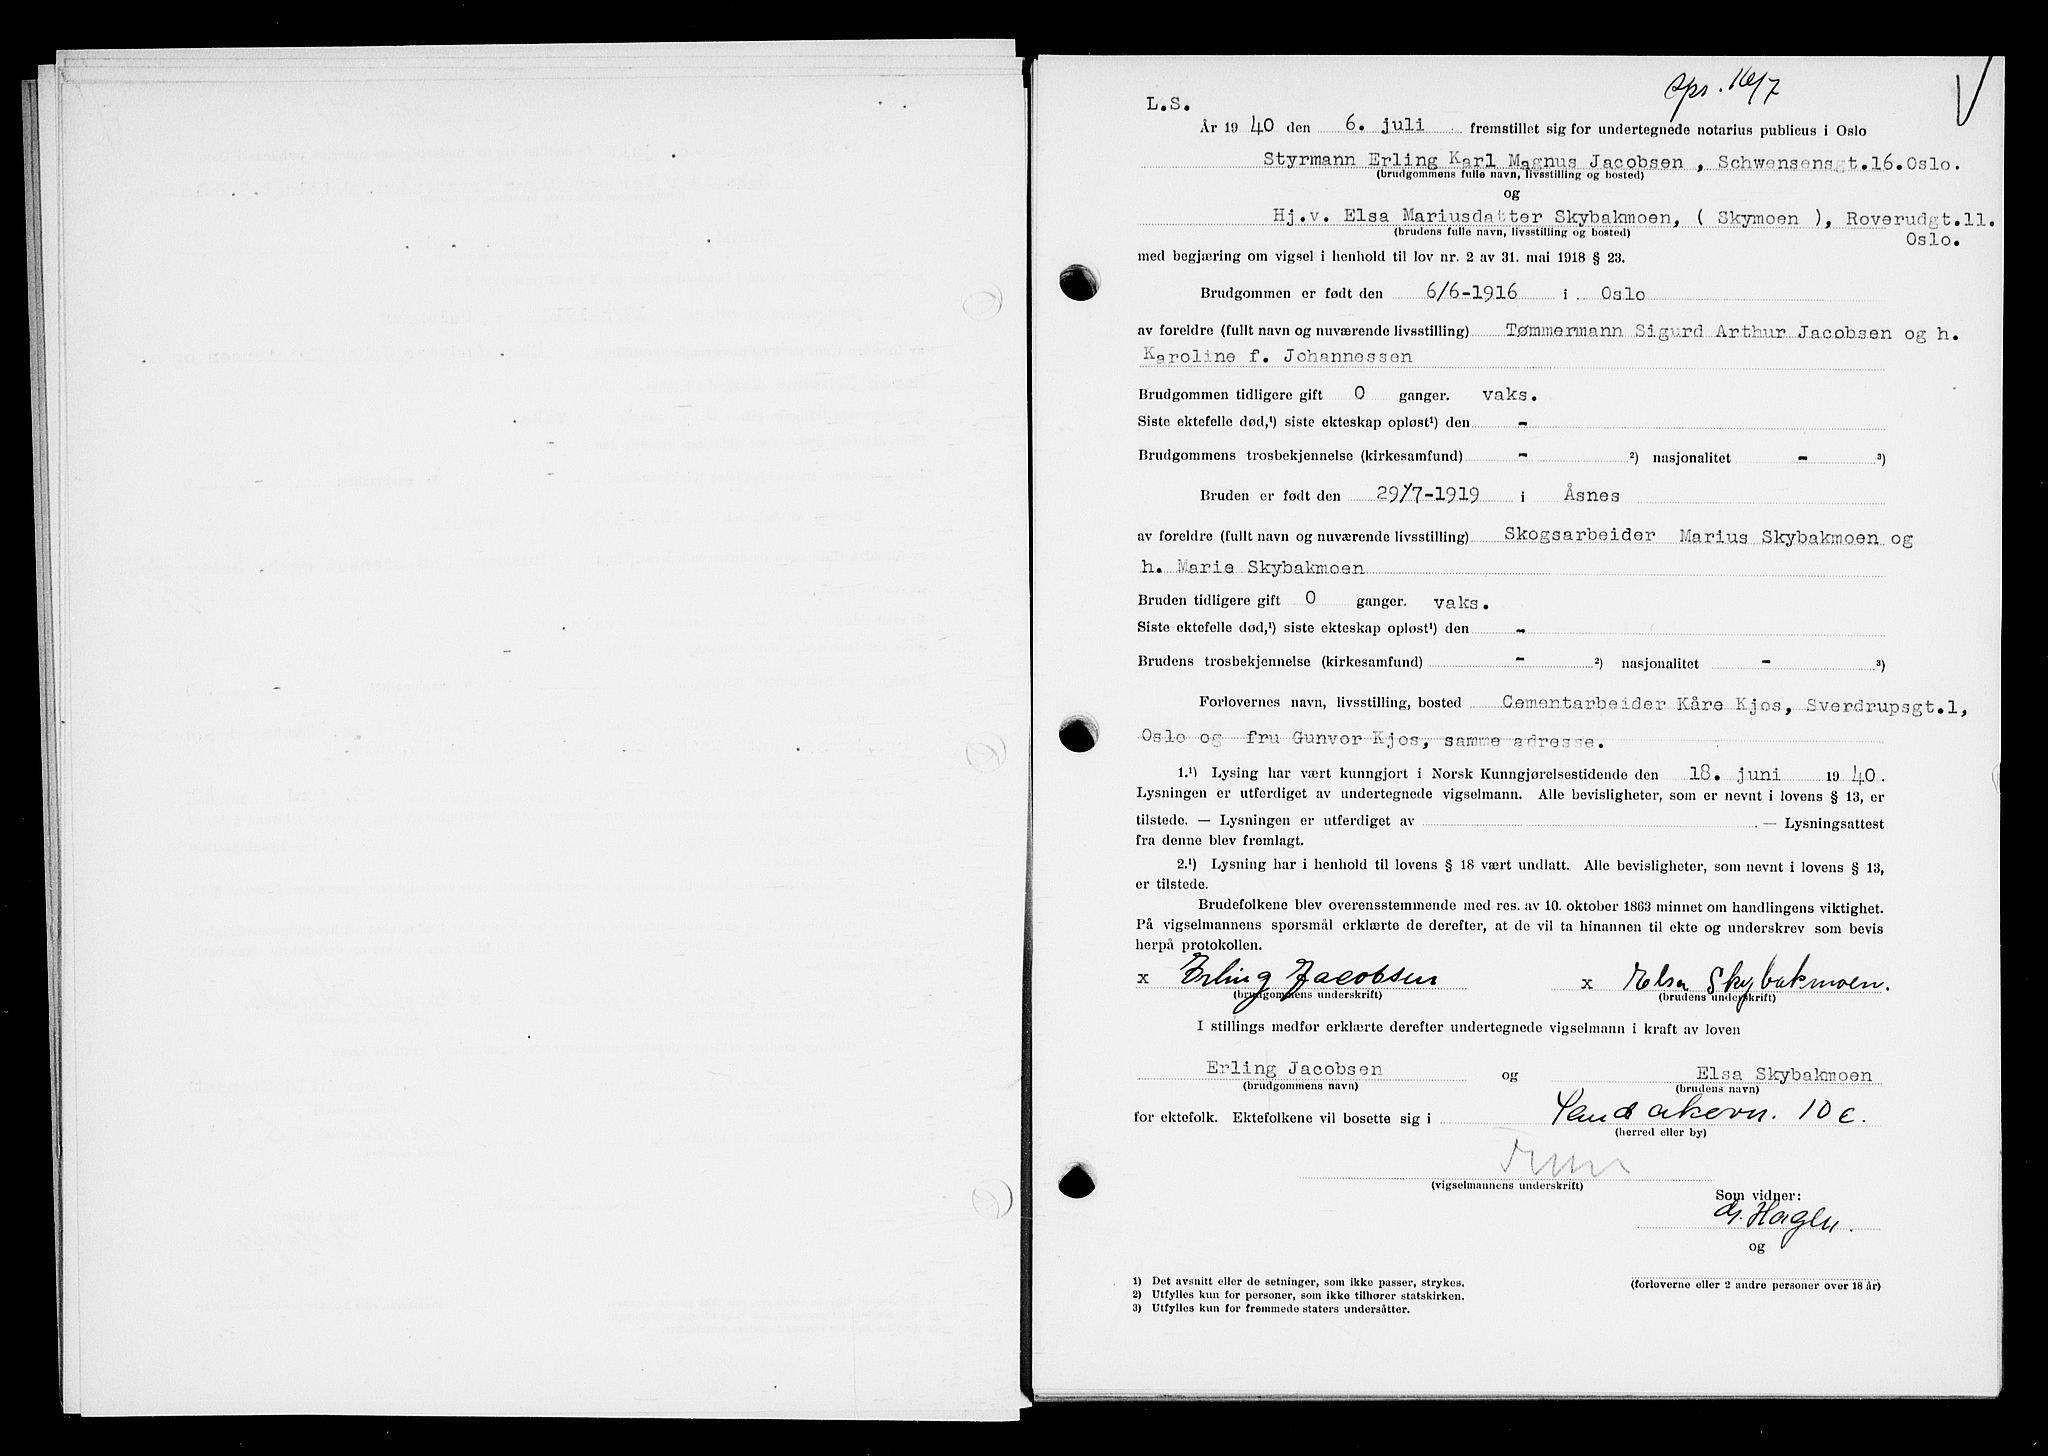 L.S.
År 1940 den 6. juli fremstillet sig for undertegnede notarius publicus i Oslo
Styrmann Erling Karl Magnus Jacobsen , Schwensensgt.16.Oslo.
(brudgommens fulle navn, livsstilling og bosted)
og
Hj.v. Elsa Mariusdatter Skybakmoen, ( Skymoen ), Roverudgt.11.
(brudens fulle navn, livsstilling og bosted)
Oslo.
med begjæring om vigsel i henhold til lov nr. 2 av 31. mai 1918 § 23.
Brudgommen er født den 6/6-1916 i Oslo
av foreldre (fullt navn og nuværende livsstilling) Tømmermann Sigurd Arthur Jacobsen og h.
Karoline f. Johannessen
Brudgommen tidligere gift 0 ganger. vaks.
Siste ektefelle død,¹) siste ekteskap opløst¹) den -
Brudgommens trosbekjennelse (kirkesamfund) - ²) nasjonalitet - ³)
Bruden er født den 29/7-1919 i Åsnes
av foreldre (fullt navn og nuværende livsstilling) Skogsarbeider Marius Skybakmoen og
h. Marie Skybakmoen
Bruden tidligere gift 0 ganger. vaks.
Siste ektefelle død,¹) siste ekteskap opløst¹) den -
Brudens trosbekjennelse (kirkesamfund) - ²) nasjonalitet - ³)
Forlovernes navn, livsstilling, bosted Cementarbeider Kåre Kjos, Sverdrupsgt.1,
Oslo og fru Gunvor Kjos, samme adresse.
1.¹) Lysing har vært kunngjort i Norsk Kunngjørelsestidende den 18. juni 1940.
Lysningen er utferdiget av undertegnede vigselmann. Alle bevisligheter, som er nevnt i lovens § 13, er
tilstede. — Lysningen er utferdiget av . — Lysningsattest
fra denne blev fremlagt.
2.¹) Lysning har i henhold til lovens § 18 vært undlatt. Alle bevisligheter, som nevnt i lovens § 13,
er tilstede.
Brudefolkene blev overensstemmende med res. av 10. oktober 1863 minnet om handlingens viktighet.
På vigselmannens spørsmål erklærte de derefter, at de vil ta hinannen til ekte og underskrev som bevis
herpå protokollen.
x Erling Jacobsen x Elsa Skybakmoen.
(brudgommens underskrift) (brudens underskrift)
I stillings medfør erklærte derefter undertegnede vigselmann i kraft av loven
Erling Jacobsen og Elsa Skybakmoen
(brudgommens navn) (brudens navn)
for ektefolk. Ektefolkene vil bosette sig i Sandakervn. 10 c.
(herred eller by)
(vigselmannens underskrift)
Som vidner:
og
1) Det avsnitt eller de setninger, som ikke passer, strykes.
2) Utfylles kun for personer, som ikke tilhører statskirken.
3) Utfylles kun for fremmede staters undersåtter.
(forloverne eller 2 andre personer over 18 år)